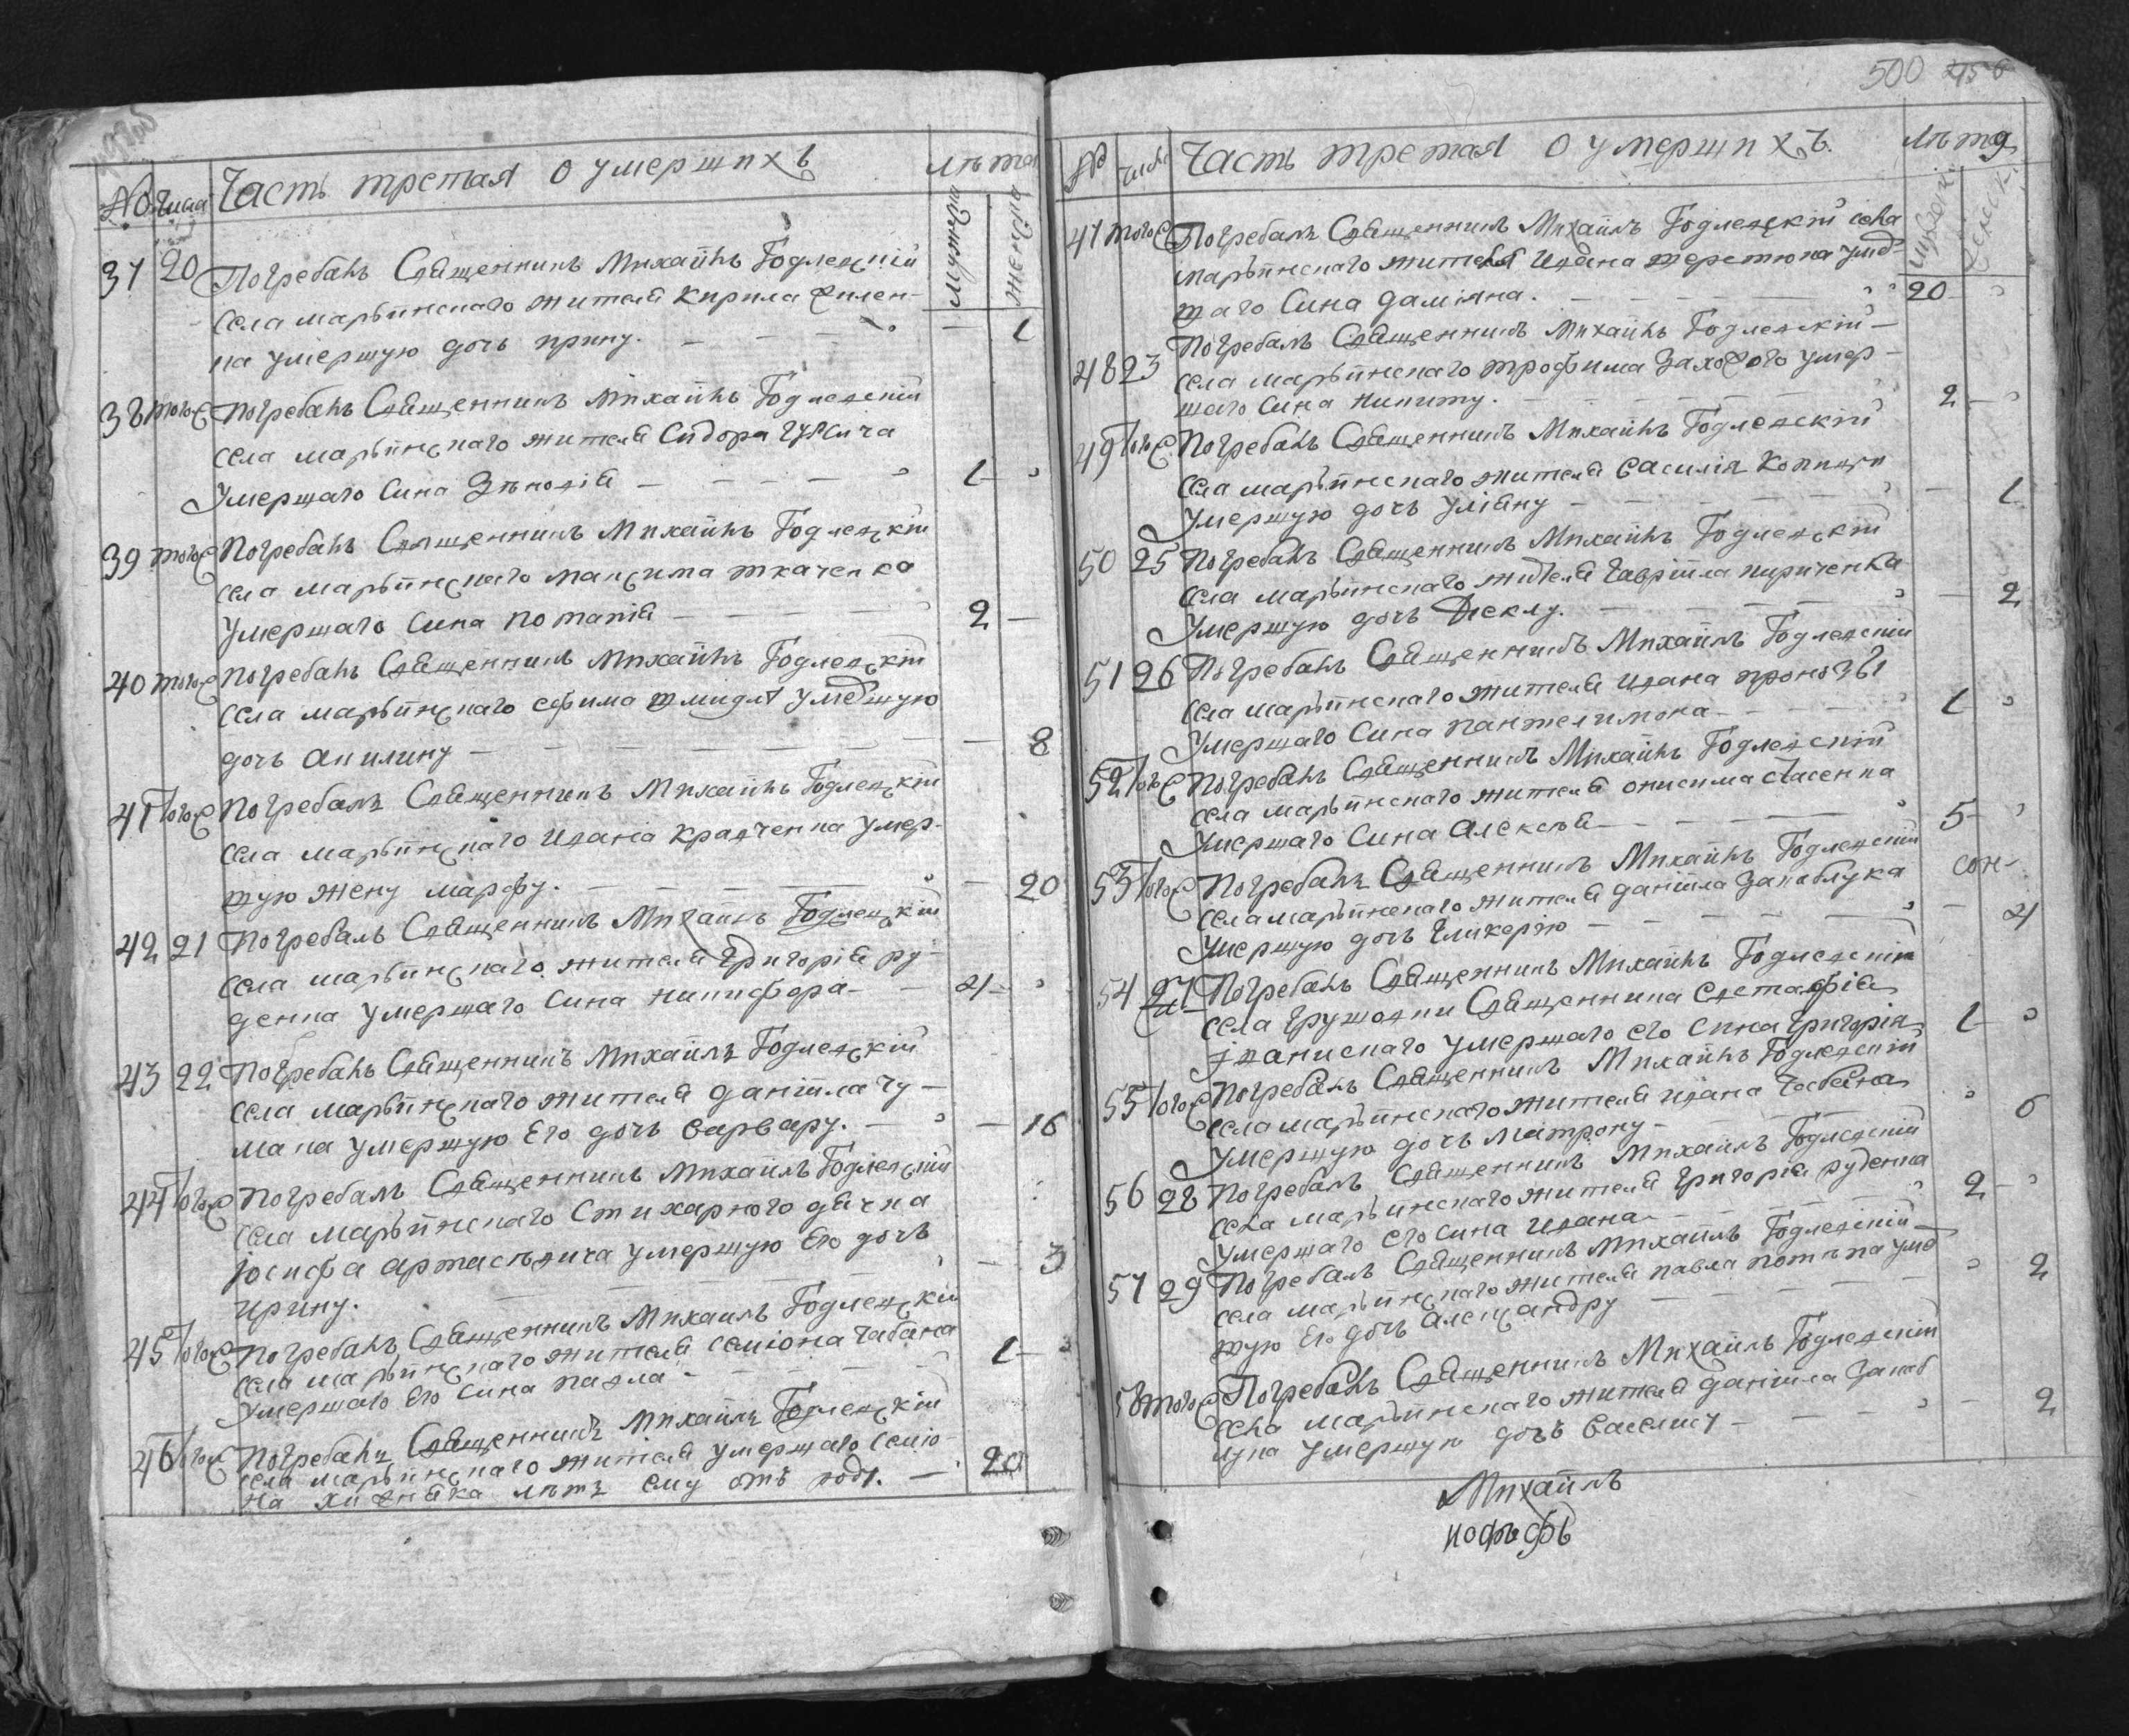 № числа Часть третая О умершихъ лѣта
мужска женска
37 20 Погребалъ Священникъ Михаилъ Годлевскій
села марьинскаго жителя кирила
ка умершую дочь ирину. 1
38 того Погребалъ Священникъ Михаилъ Годлевскій
села марьинскаго жителя Сидора
Умершаго Сина Зѣновія 1
39 того Погребалъ Священникъ Михаилъ Годлевскій
села марьинскаго максима ткаченка
Умершаго Сина потапія 2
40 того Погребалъ Священникъ Михаилъ Годлевскій
села марьинскаго ефима шмидля умершую
дочь акилину 8
41 того Погребалъ Священникъ Михаилъ Годлевскій
села марьинскаго Ивана кравченка умер-
шую жену марфу. 20
42 21 Погребалъ Священникъ Михаилъ Годлевскій
села марьинскаго жителя Григорія ру-
денка умершаго Сина никифора 4
43 22 Погребалъ Священникъ Михаилъ Годлевскій
села марьинскаго жителя даніила чу-
мака умершую Его дочь варвару. 16
44 того Погребалъ Священникъ Михаилъ Годлевскій
села марьинскаго Стихарного дячка
Іосифа умершую Его дочь
ирину. 3
45 того Погребалъ Священникъ Михаилъ Годлевскій
села марьинскаго жителя семіона чабана
Умершаго Его Сина павла 1
46 того Погребалъ Священникъ Михаилъ Годлевскій
села марьинскаго жителя умершаго семіо-
на лѣтъ ему отъ роду. 20
500
№ число Часть третая О умершихъ. лѣта
мужеск. женск.
47 того Погребалъ Священникъ Михаилъ Годлевскій села
марьинскаго жителя Ивана терстюка умер-
шаго Сина даміяна. 20
48 23 Погребалъ Священникъ Михаилъ Годлевскій
села марьинскаго трофима умер-
шаго Сина никиту. 2
49 того Погребалъ Священникъ Михаилъ Годлевскій
села марьинскаго жителя василія
Умершую дочь уліяну 1
50 25 Погребалъ Священникъ Михаилъ Годлевскій
села марьинскаго жителя гавріила кириченка
Умершую дочь Феклу. 2
51 26 Погребалъ Священникъ Михаилъ Годлевскій
села марьинскаго жителя ивана
Умершаго Сина пантелимона 1
52 того Погребалъ Священникъ Михаилъ Годлевскій
села марьинскаго жителя онисима стасенка
Умершаго Сина алексѣя 5
53 того Погребалъ Священникъ Михаилъ Годлевскій
села марьинскаго жителя даніила закаблука
Умершую дочь Гликерію 4
54 27 Погребалъ Священникъ Михаилъ Годлевскій
села грушовки Священника евстафія
умершаго его сина григорія 1
55 того Погребалъ Священникъ Михаилъ Годлевскій
села марьинскаго жителя ивана чабана
Умершую дочь матрону 6
56 28 Погребалъ Священникъ Михаилъ Годлевскій
села марьинскаго жителя григорія руденка
Умершаго его сина ивана 2
57 29 Погребалъ Священникъ Михаилъ Годлевскій
села марьинскаго жителя павла умер
шую Его дочь александру 2
58 того Погребалъ Священникъ Михаилъ Годлевскій
села марьинскаго жителя даніила закаб
лука умершую дочь василису 2
Михаилъ